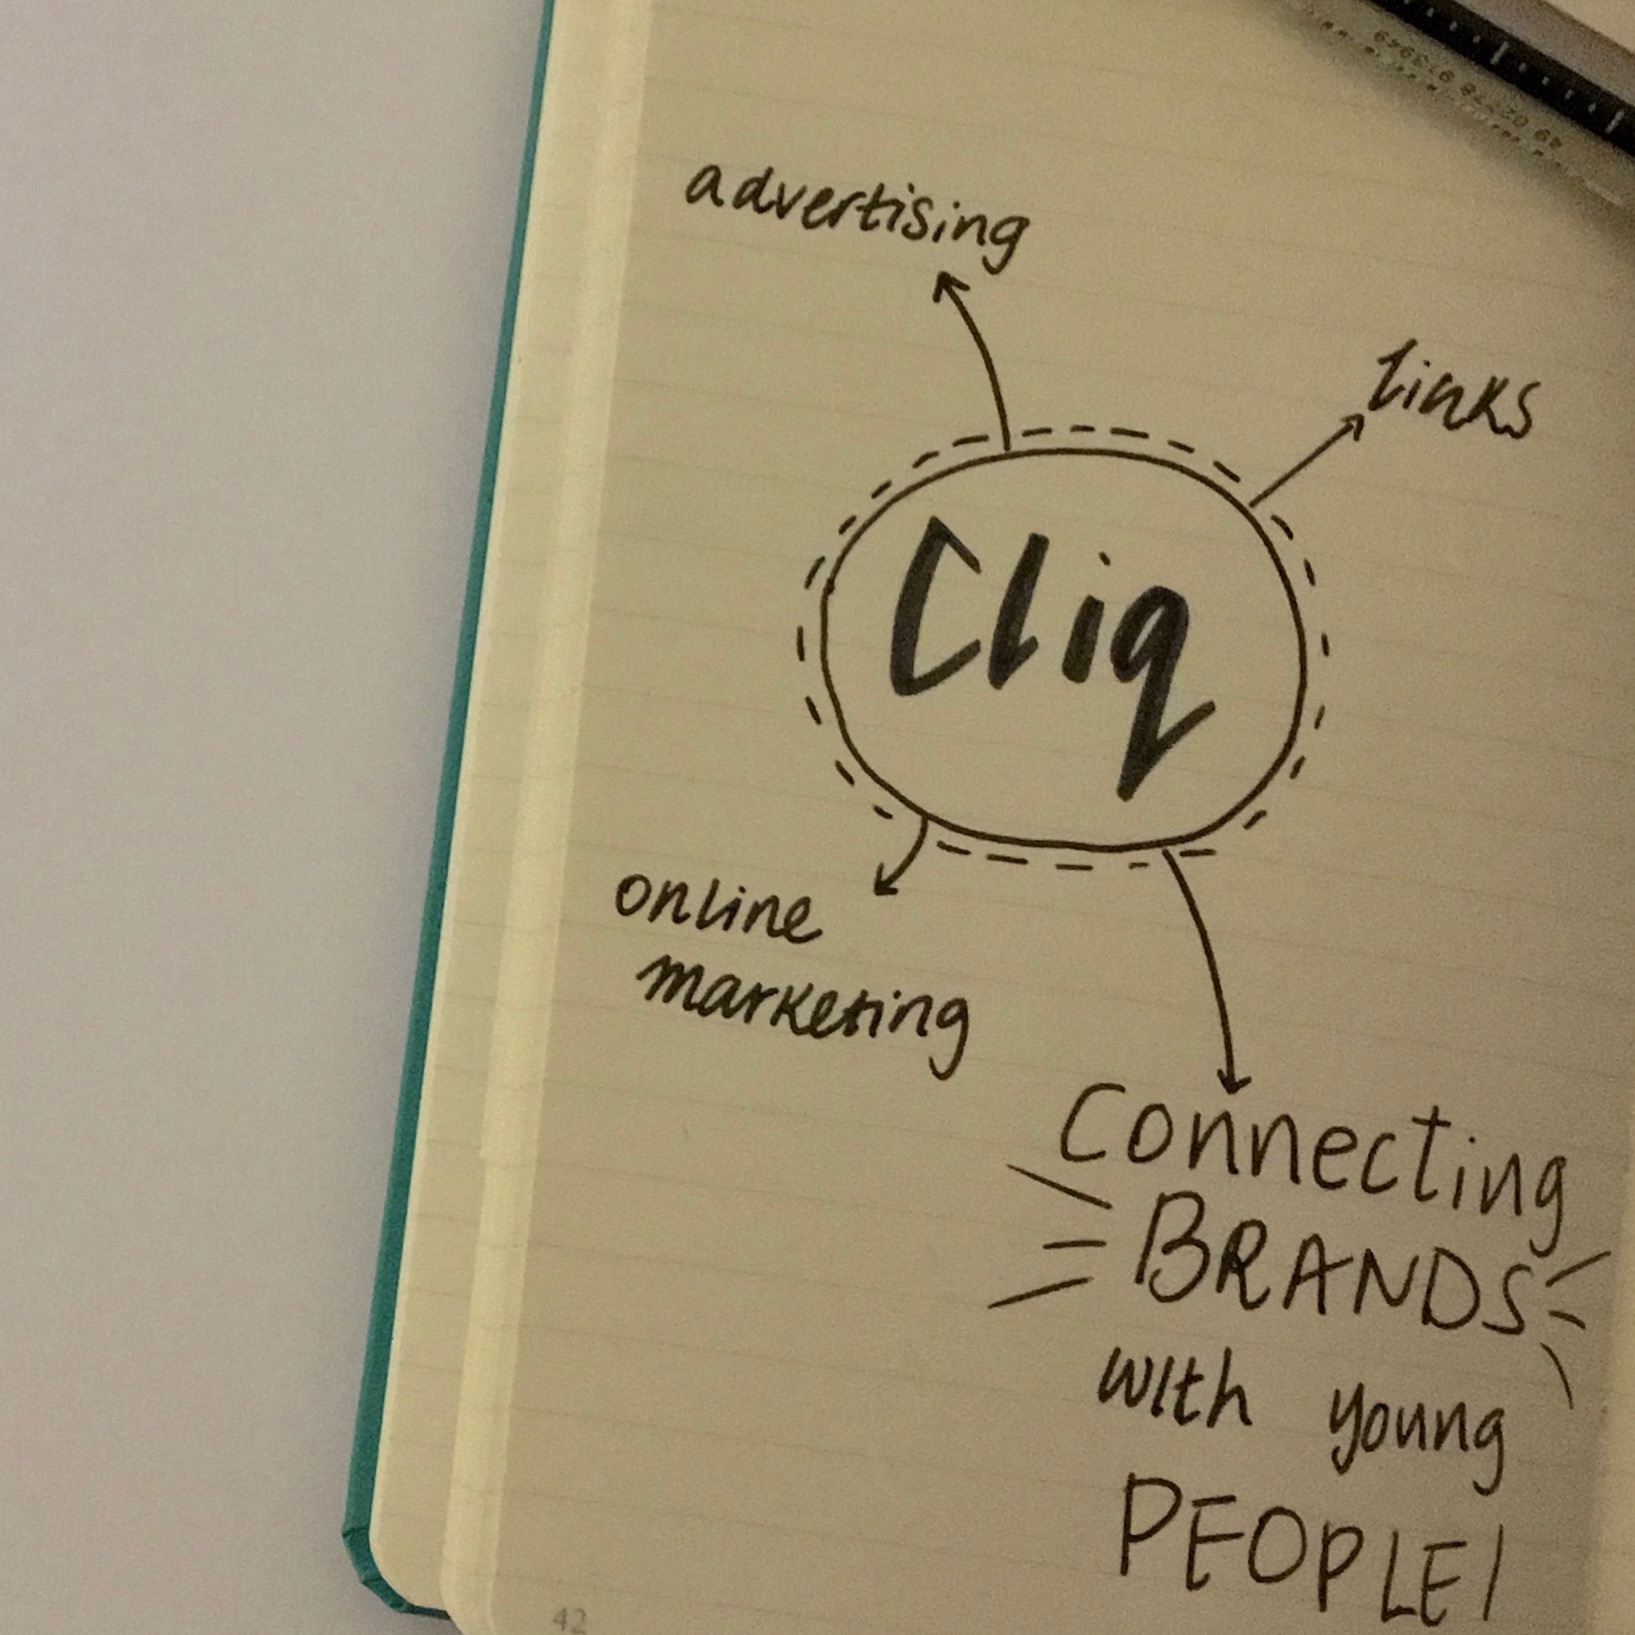 advertising
links
Cliq
online
marketing
Connecting
BRANDS
with young
PEOPLE!
42